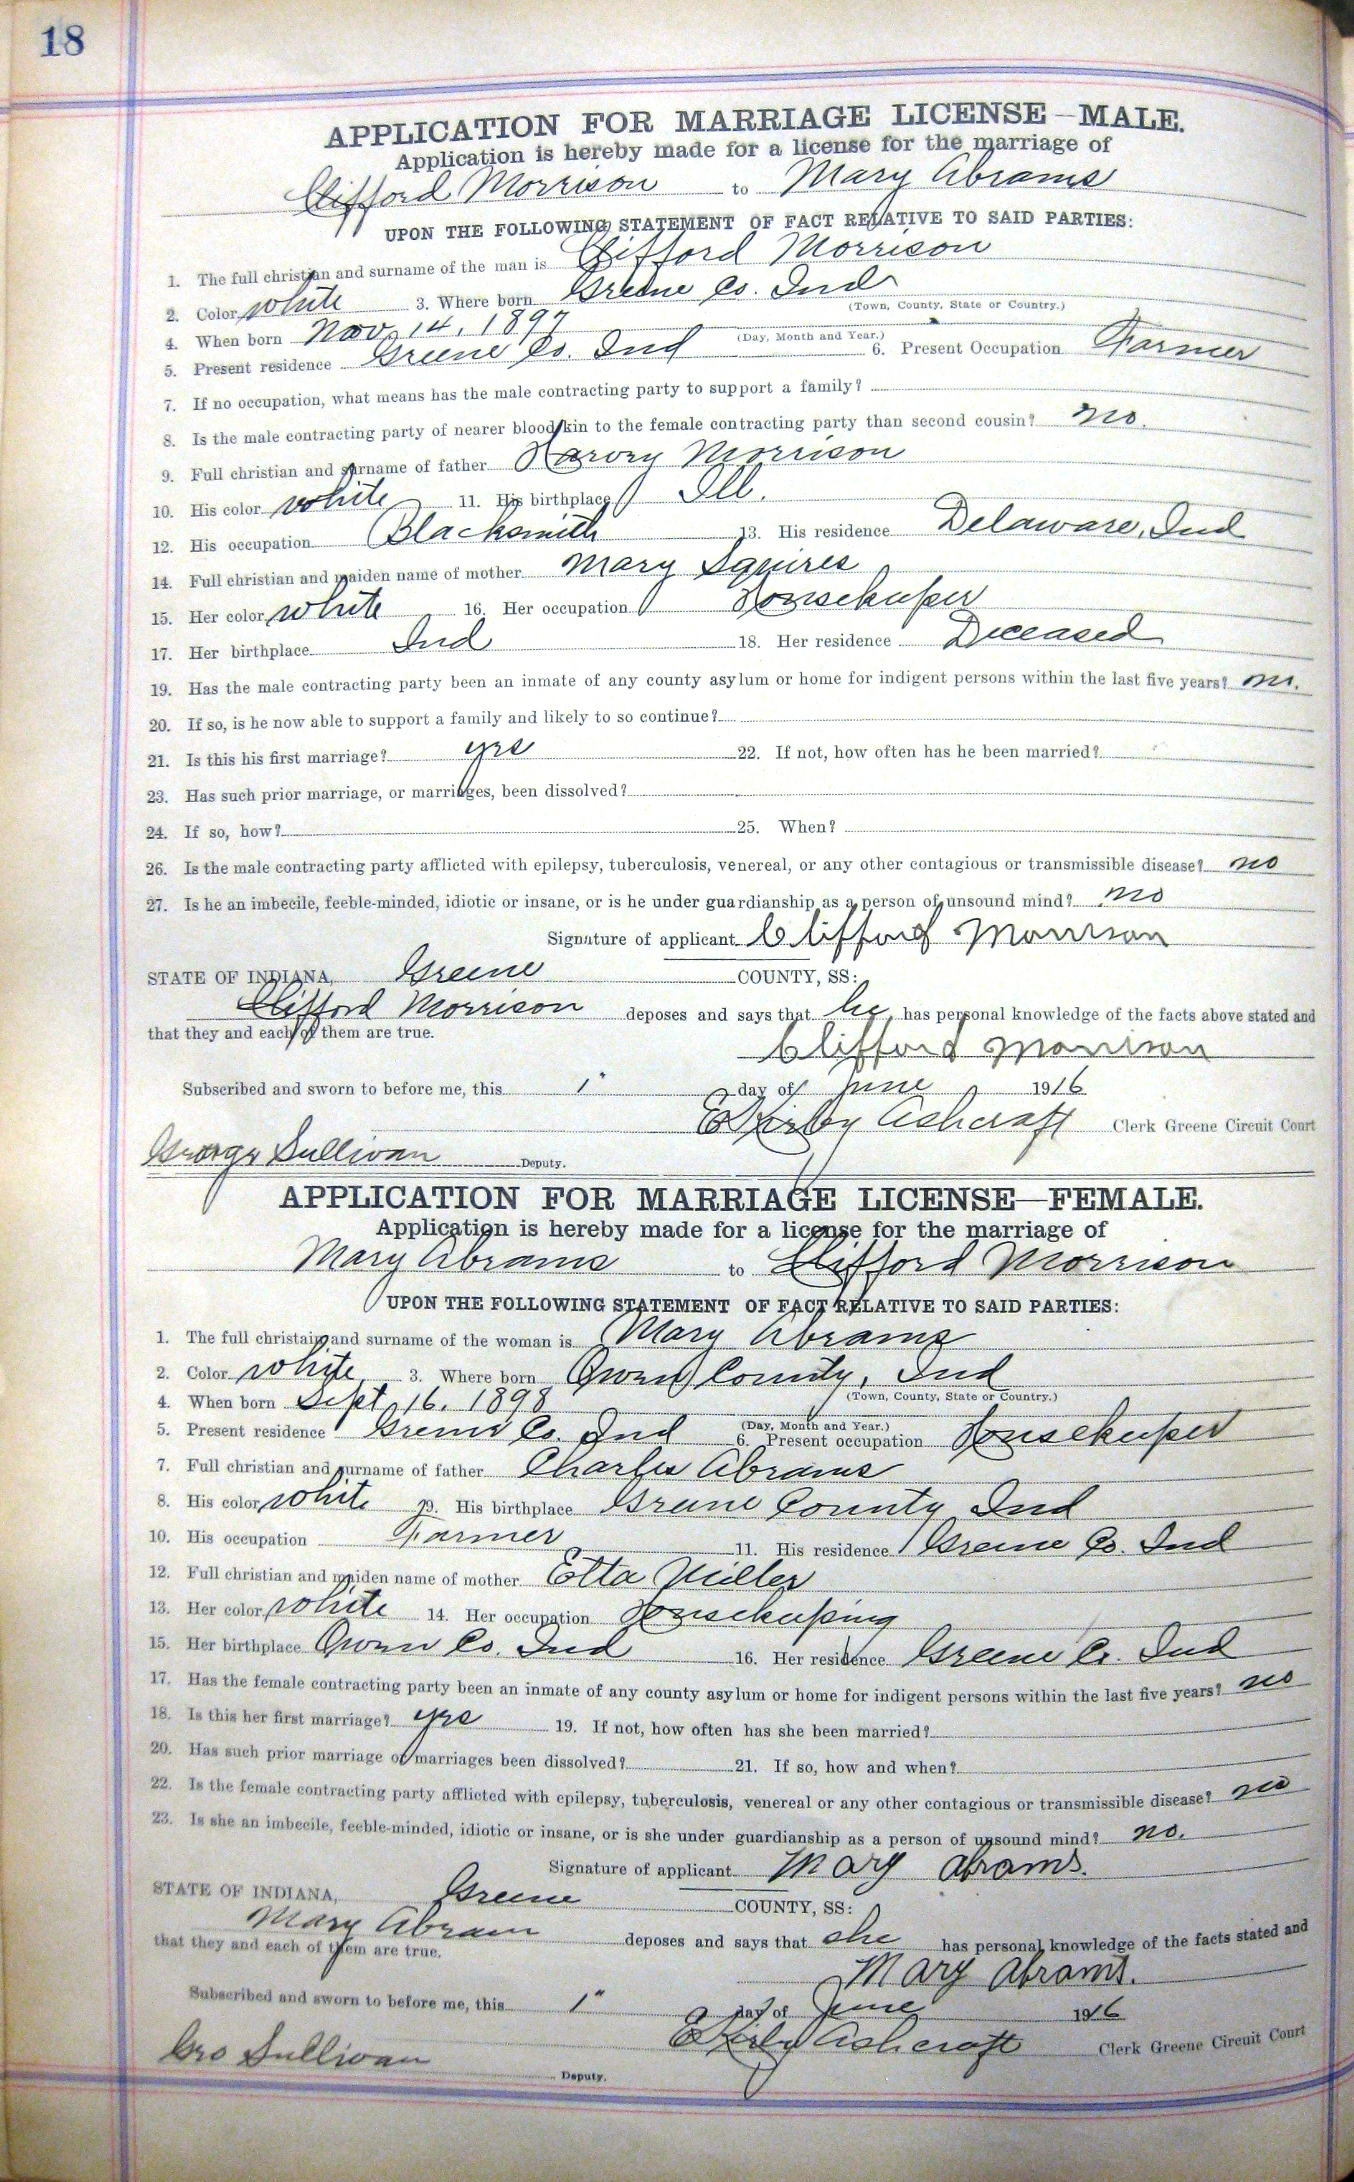 18
APPLICATION FOR MARRIAGE LICENSE—MALE.
Application is hereby made for a license for the marriage of
Clifford Morrison to Mary Abrams
UPON THE FOLLOWING STATEMENT OF FACT RELATIVE TO SAID PARTIES:
1. The full christian and surname of the man is Clifford Morrison
2. Color white 3. Where born Greene Co. Ind
(Town, County, State or Country.)
4. When born Nov. 14, 1897 (Day, Month and Year.)
5. Present residence Greene Co. Ind 6. Present Occupation Farmer
7. If no occupation, what means has the male contracting party to support a family?
8. Is the male contracting party of nearer blood kin to the female contracting party than second cousin? no.
9. Full christian and surname of father Harvey Morrison
10. His color white 11. His birthplace Ill.
12. His occupation Blacksmith 13. His residence Delaware, Ind
14. Full christian and maiden name of mother Mary Squires
15. Her color white 16. Her occupation Housekeeper
17. Her birthplace Ind 18. Her residence Deceased
19. Has the male contracting party been an inmate of any county asylum or home for indigent persons within the last five years? no.
20. If so, is he now able to support a family and likely to so continue?
21. Is this his first marriage? yes 22. If not, how often has he been married?
23. Has such prior marriage, or marriages, been dissolved?
24. If so, how? 25. When?
26. Is the male contracting party afflicted with epilepsy, tuberculosis, venereal, or any other contagious or transmissible disease? no
27. Is he an imbecile, feeble-minded, idiotic or insane, or is he under guardianship as a person of unsound mind? no
Signature of applicant Clifford Morrison
STATE OF INDIANA, Greene COUNTY, SS:
Clifford Morrison deposes and says that he has personal knowledge of the facts above stated and
that they and each of them are true.
Clifford Morrison
Subscribed and sworn to before me, this 1" day of June 1916
E Kirby Ashcraft Clerk Greene Circuit Court
George Sullivan Deputy.
APPLICATION FOR MARRIAGE LICENSE—FEMALE.
Application is hereby made for a license for the marriage of
Mary Abrams to Clifford Morrison
UPON THE FOLLOWING STATEMENT OF FACT RELATIVE TO SAID PARTIES:
1. The full christain and surname of the woman is Mary Abrams
2. Color white 3. Where born Owen County, Ind
(Town, County, State or Country.)
4. When born Sept 16, 1898 (Day, Month and Year.)
5. Present residence Greene Co. Ind 6. Present occupation Housekeeper
7. Full christian and surname of father Charles Abrams
8. His color white 9. His birthplace Greene County Ind
10. His occupation Farmer 11. His residence Greene Co. Ind
12. Full christian and maiden name of mother Etta Miller
13. Her color white 14. Her occupation Housekeeping
15. Her birthplace Owen Co. Ind 16. Her residence Greene Co. Ind
17. Has the female contracting party been an inmate of any county asylum or home for indigent persons within the last five years? no
18. Is this her first marriage? yes 19. If not, how often has she been married?
20. Has such prior marriage or marriages been dissolved? 21. If so, how and when?
22. Is the female contracting party afflicted with epilepsy, tuberculosis, venereal or any other contagious or transmissible disease? no
23. Is she an imbecile, feeble-minded, idiotic or insane, or is she under guardianship as a person of unsound mind? no.
Signature of applicant Mary Abrams.
STATE OF INDIANA, Greene COUNTY, SS:
Mary Abram deposes and says that she has personal knowledge of the facts stated and
that they and each of them are true.
Mary Abrams.
Subscribed and sworn to before me, this 1" day of June 1916
E Kirby Ashcraft Clerk Greene Circuit Court
Geo Sullivan Deputy.